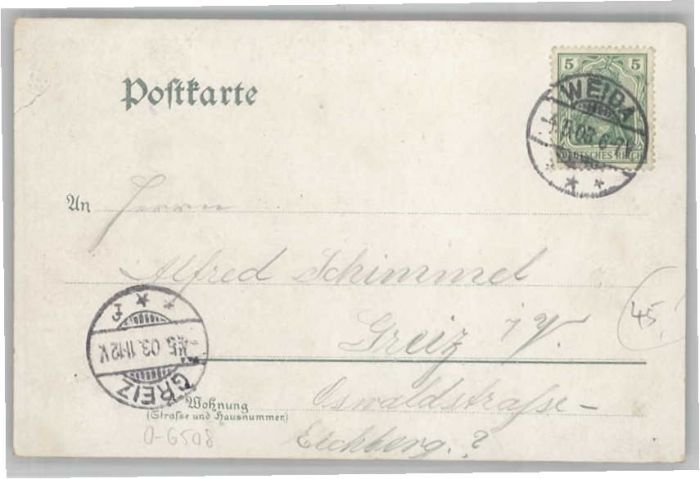 Postkarte
5 5
WEIDA
03. 6-7V.
DEUTSCHES REICH
An Herrn
Alfred Schimmel
45.
Greiz i/V.
5.03.11-12V.
GREIZ
Wohnung
(Straße und Hausnummer)
Oswaldstraße-
Eichberg.?
O-6508